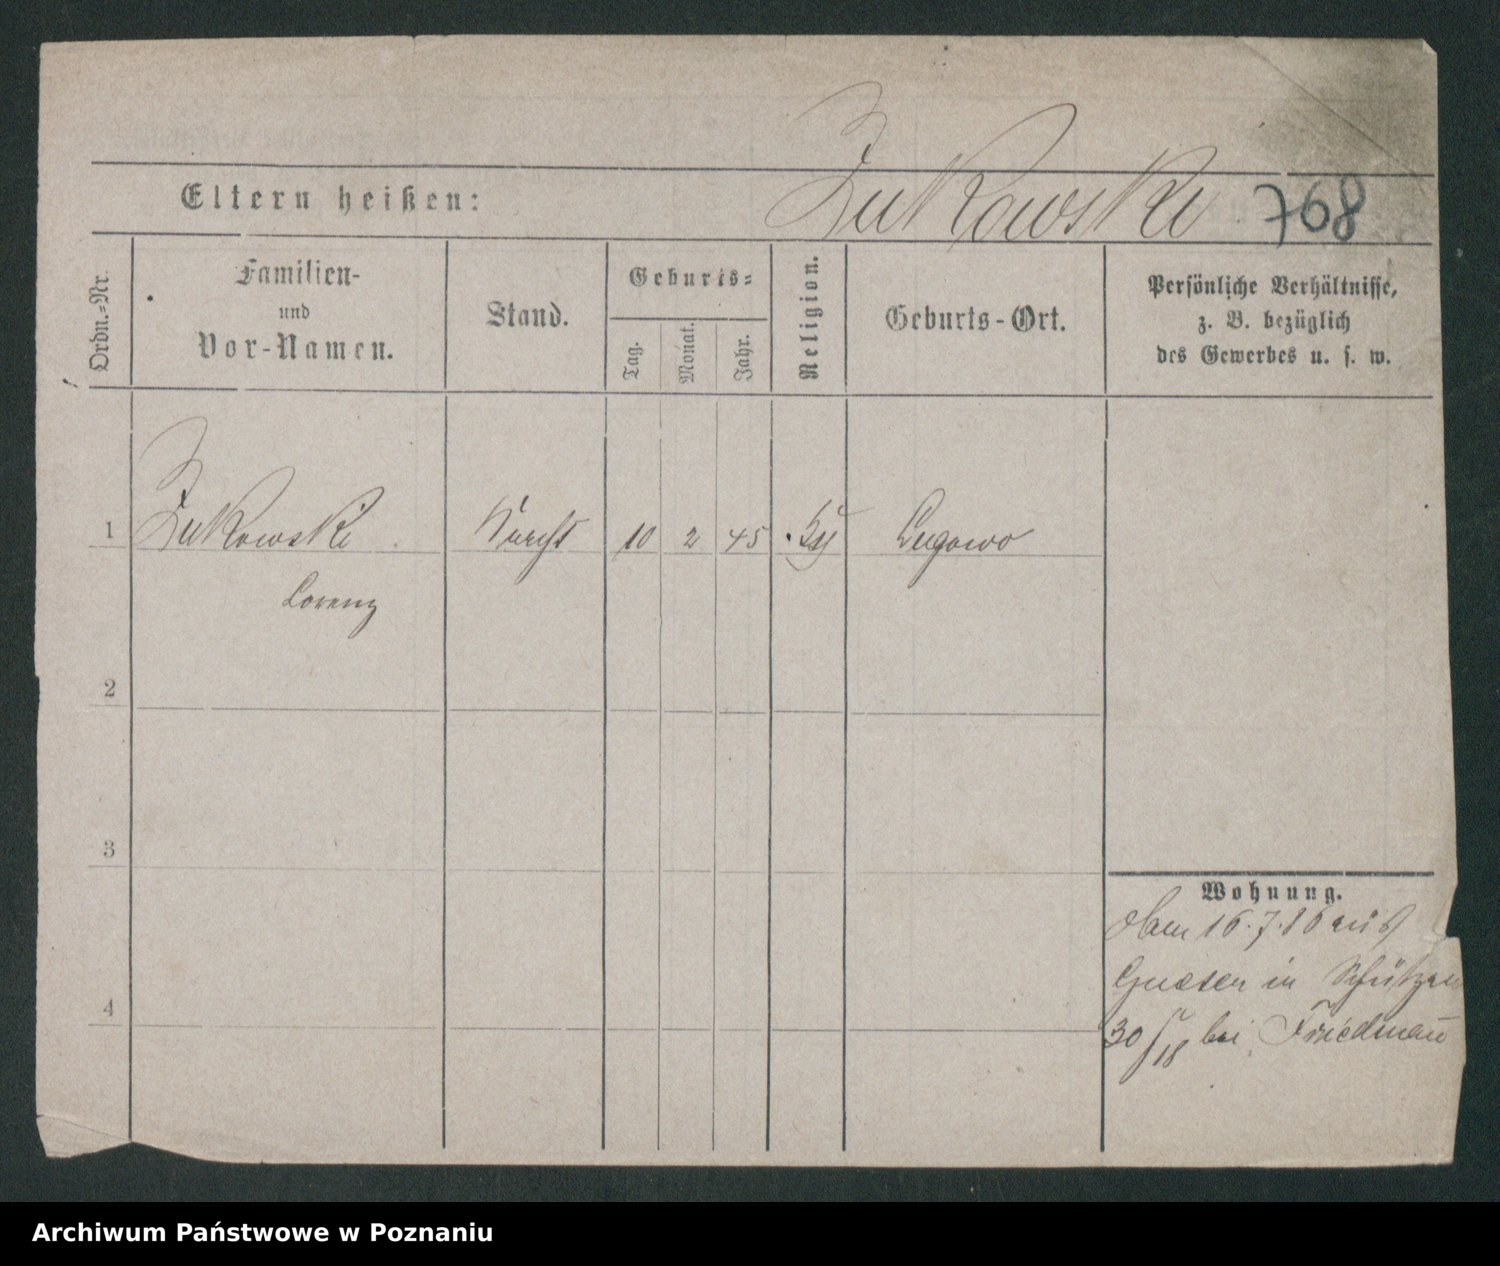 Zukowski 768
Eltern heißen:
Ordn.-Nr.
Familien-
und
Vor-Namen.
Stand.
Geburts-
Tag.
Monat.
Jahr.
Religion.
Geburts-Ort.
Persönliche Verhältnisse,
z. B. bezüglich
des Gewerbes u. s. w.
1 Zukowski Knecht 10 2 45 Lugowo
Lorenz
2
3
4
Wohnung.
16.7.86 aus
Gnesen in Schützen
30/18 bei Friedman̅
Archiwum Państwowe w Poznaniu